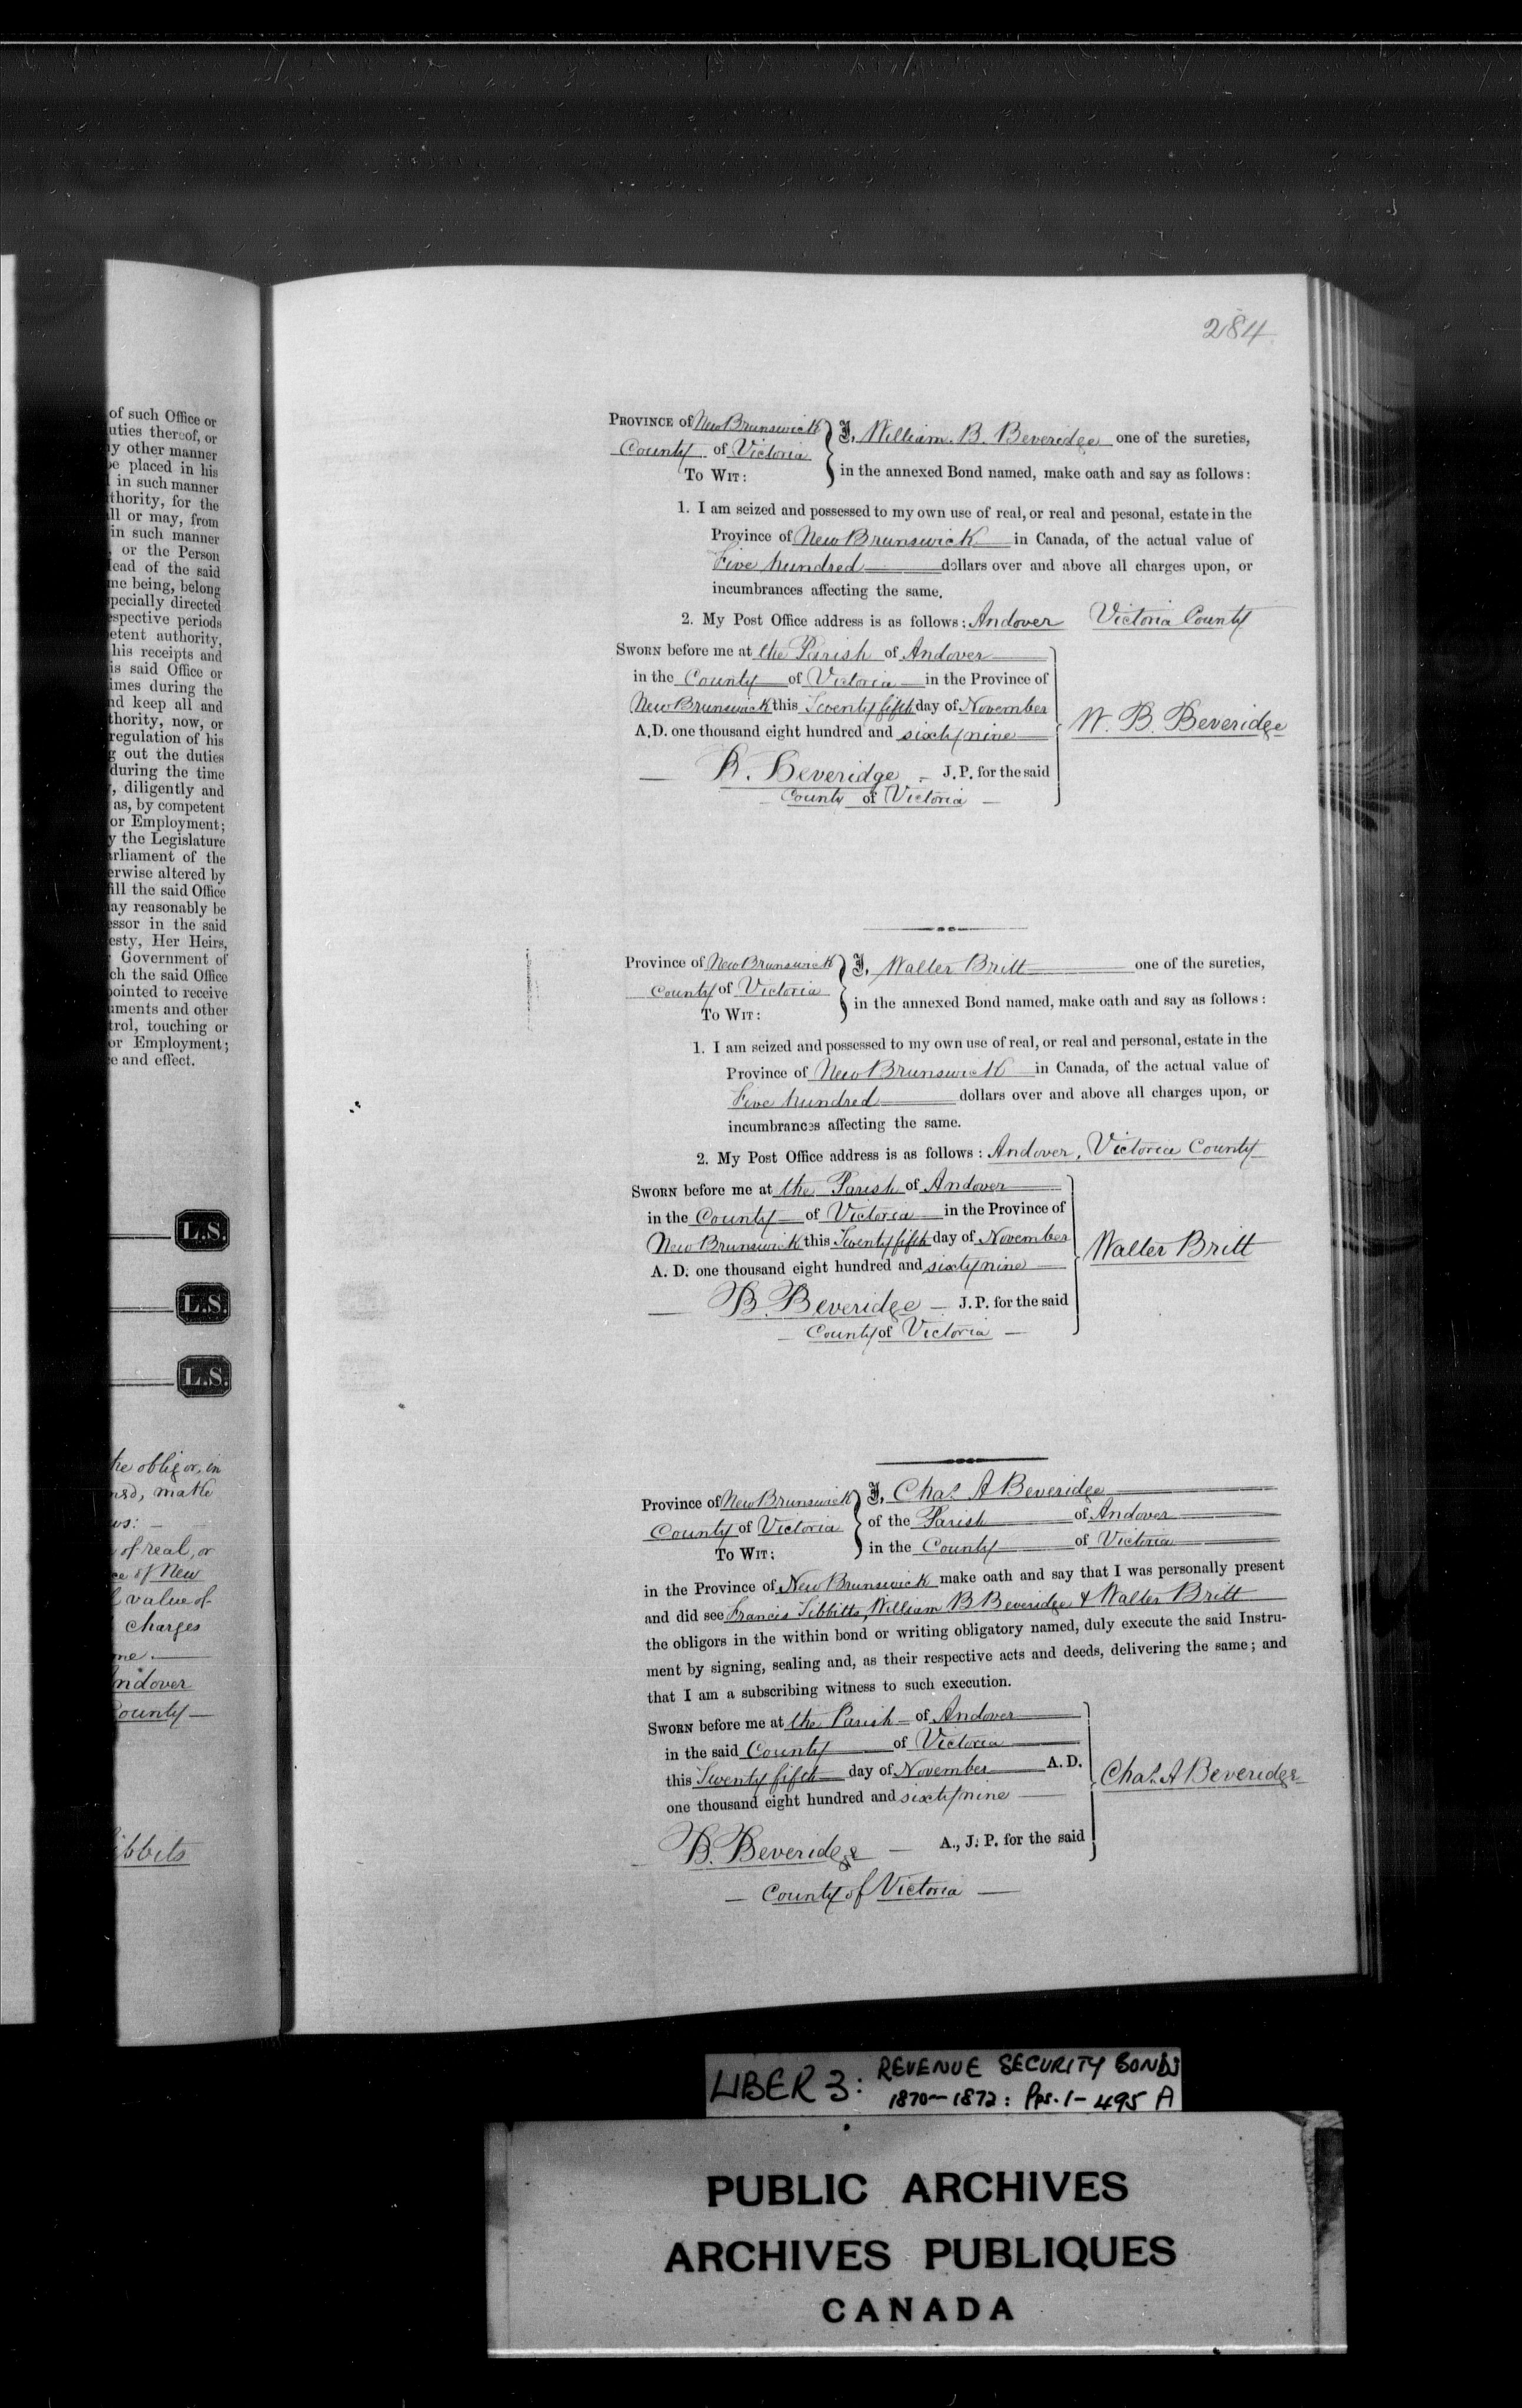 of such Office or
uties thereof, or
y other manner
be placed in his
in such manner
thority, for the
ll or may, from
in such manner
, or the Person
lead of the said
me being, belong
pecially directed
espective periods
etent authority,
his receipts and
is said Office or
imes during the
nd keep all and
thority, now, or
regulation of his
g out the duties
during the time
, diligently and
as, by competent
or Employment;
y the Legislature
arliament of the
erwise altered by
fill the said Office
ay reasonably be
essor in the said
esty, Her Heirs,
Government of
ch the said Office
pointed to receive
uments and other
trol, touching or
or Employment;
e and effect.
L.S.
L.S.
L.S.
he obligor, in
nsd, make
ws: —
of real, or
ce of New
l value of
charges
me.
Andover
County
ibbits
284
PROVINCE of New Brunswick } I, William. B. Beveridge one of the sureties,
County of Victoria
TO WIT: in the annexed Bond named, make oath and say as follows:
1. I am seized and possessed to my own use of real, or real and pesonal, estate in the
Province of New Brunswick in Canada, of the actual value of
Five hundred dollars over and above all charges upon, or
incumbrances affecting the same.
2. My Post Office address is as follows: Andover Victoria County
SWORN before me at the Parish of Andover
in the County of Victoria in the Province of
New Brunswick this Twenty fifth day of November
A.D. one thousand eight hundred and sixty nine
W. B. Beveridge
B. Beveridge - J. P. for the said
County of Victoria
Province of New Brunswick } I, Walter Britt one of the sureties,
County of Victoria
TO WIT: in the annexed Bond named, make oath and say as follows:
1. I am seized and possessed to my own use of real, or real and personal, estate in the
Province of New Brunswick in Canada, of the actual value of
Five hundred dollars over and above all charges upon, or
incumbrances affecting the same.
2. My Post Office address is as follows: Andover, Victoria County
SWORN before me at the Parish of Andover
in the County of Victoria in the Province of
New Brunswick this Twenty fifth day of November
Walter Britt
A. D. one thousand eight hundred and sixty nine
B. Beveridge - J. P. for the said
County of Victoria
Province of New Brunswick } I, Chas. A Beveridge
County of Victoria of the Parish of Andover
TO WIT: in the County of Victoria
in the Province of New Brunswick make oath and say that I was personally present
and did see Francis Tibbitts, William B Beveridge & Walter Britt
the obligors in the within bond or writing obligatory named, duly execute the said Instru-
ment by signing, sealing and, as their respective acts and deeds, delivering the same; and
that I am a subscribing witness to such execution.
SWORN before me at the Parish of Andover
in the said County of Victoria
this Twenty fifth day of November A. D.
Chas. A Beveridge
one thousand eight hundred and sixty nine
B. Beveridge — A., J. P. for the said
— County of Victoria —
LIBER 3: REVENUE SECURITY BONDS
1870-1872: Pps. 1-495 A
PUBLIC ARCHIVES
ARCHIVES PUBLIQUES
CANADA